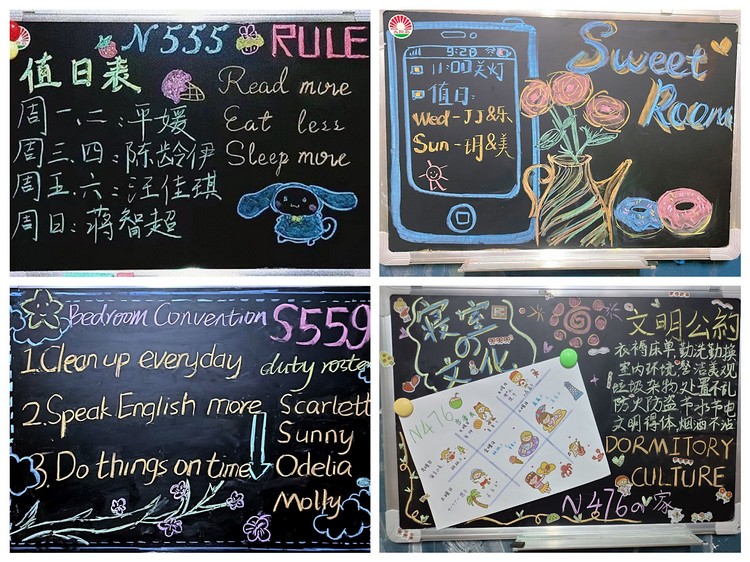 N555
RULE
值日表
周一、二:平媛
周三、四:陈龄伊
周五、六:汪佳琪
周日:蒋智超
Read more
Eat less
Sleep more
9:28
11:00关灯
值日:
Wed-JJ&乐
Sun-玥&美
Sweet
Room
Bedroom Convention
S559
1.Clean up everyday
2.Speak English more
3.Do things on time
duty roster
Scarlett
Sunny
Odelia
Molly
寝室
の
文化
文明公約
衣褥床单勤洗勤换
室内环境整洁美观
垃圾杂物处置不乱
防火防盗节水节电
文明得体烟酒不沾
DORMITORY
CULTURE
N476の家
N476